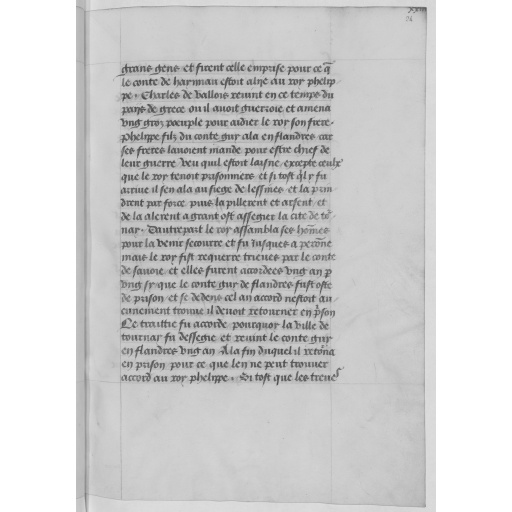 26
grans gens et firent celle emprise pour ce q̄
le conte de haynnau estoit alye au roy phelip
pe. Charles de Vallois reuint en ce temps du
pays de grece ou il auoit guerroie et amena
vng gros poeuple pour aidier le roy son frere.
Phelippe filz du conte guy ala en flandres car
ses freres lauoient mande pour estre chief de
leur guerre veu quil estoit laisne, excepte ceulx
que le roy tenoit prisonniers et si tost q̄l y fu
arriue il sen ala au siege de lessines et la prin
drent par force, puis la pillerent et arsent, et
de la alerent a grant ost assegier la cite de to
nay. Dautrepart le roy assambla ses hōmes
pour la venir secourre et fu iusques a perōne
mais le roy fist requerre trieues par le conte
de sauoie, et elles furent accordees vng an p
vng sy, que le conte guy de flandres fust oste
de prison, et se dedens cel an accord nestoit au
cunnement trouue il deuoit retourner en p̄son
Ce traittie fu accorde, pourquoy la ville de
tournay fu dessegie et reuint le conte guy
en flandres vng an. A la fin duquel il retōna
en prison pour ce que len ne peut trouuer
accord au roy phelippe. Si tost que les treues